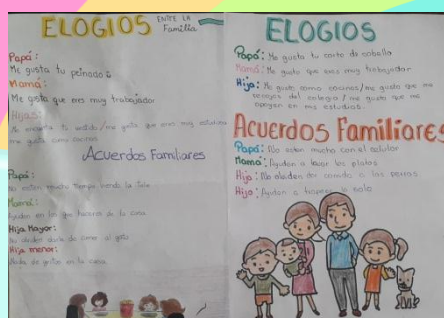 ELOGIOS ENTRE LA Familia
Papá:
Me gusta tu peinado
Mamá:
Me gusta que eres muy trabajador
Hijas:
Me encanta tu vestido/me gusta que eres muy
me gusta como cocinas
Acuerdos Familiares
Papá:
No estén mucho tiempo viendo la tele
Mamá:
Ayuden en los que haceres de la casa
Hija Mayor:
No olviden darle de comer al gato
Hija menor:
de gritos en la casa
ELOGIOS
Papá: Me gusta tu corte de cabello
Mamá: Me gusta que eres muy trabajador
Hija: Me gusta como cocinas/me gusta que me
recojas del colegio / me gusta que me
apoyen en mis estudios.
Acuerdos Familiares
Papá: No estén mucho con el celular
Mamá: Ayuden a lavar los platos
Hija: No olviden dar comida a los perros
Hijo: Ayuden a trapear la sala